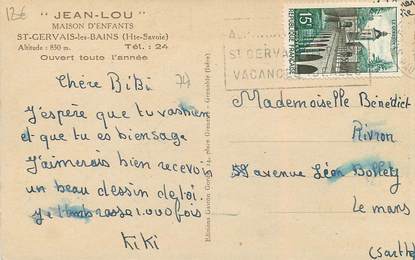 12€
" JEAN-LOU "
MAISON D'ENFANTS
ST-GERVAIS-les-BAINS (Hte-Savoie)
Altitude : 850 m. Tél. : 24
Ouvert toute l'année
Chère BiBi
74
J'espère que tu vas bien
et que tu es bien sage
J'aimerais bien recevoir
un beau dessin de toi.
Je t'embrasse 1.000 fois
KiKi
ST GERVAIS
VACANCES
15F
Mademoiselle Bénédict
Rivron
avenue Léon Bollet
Le mans
(Sarthe)